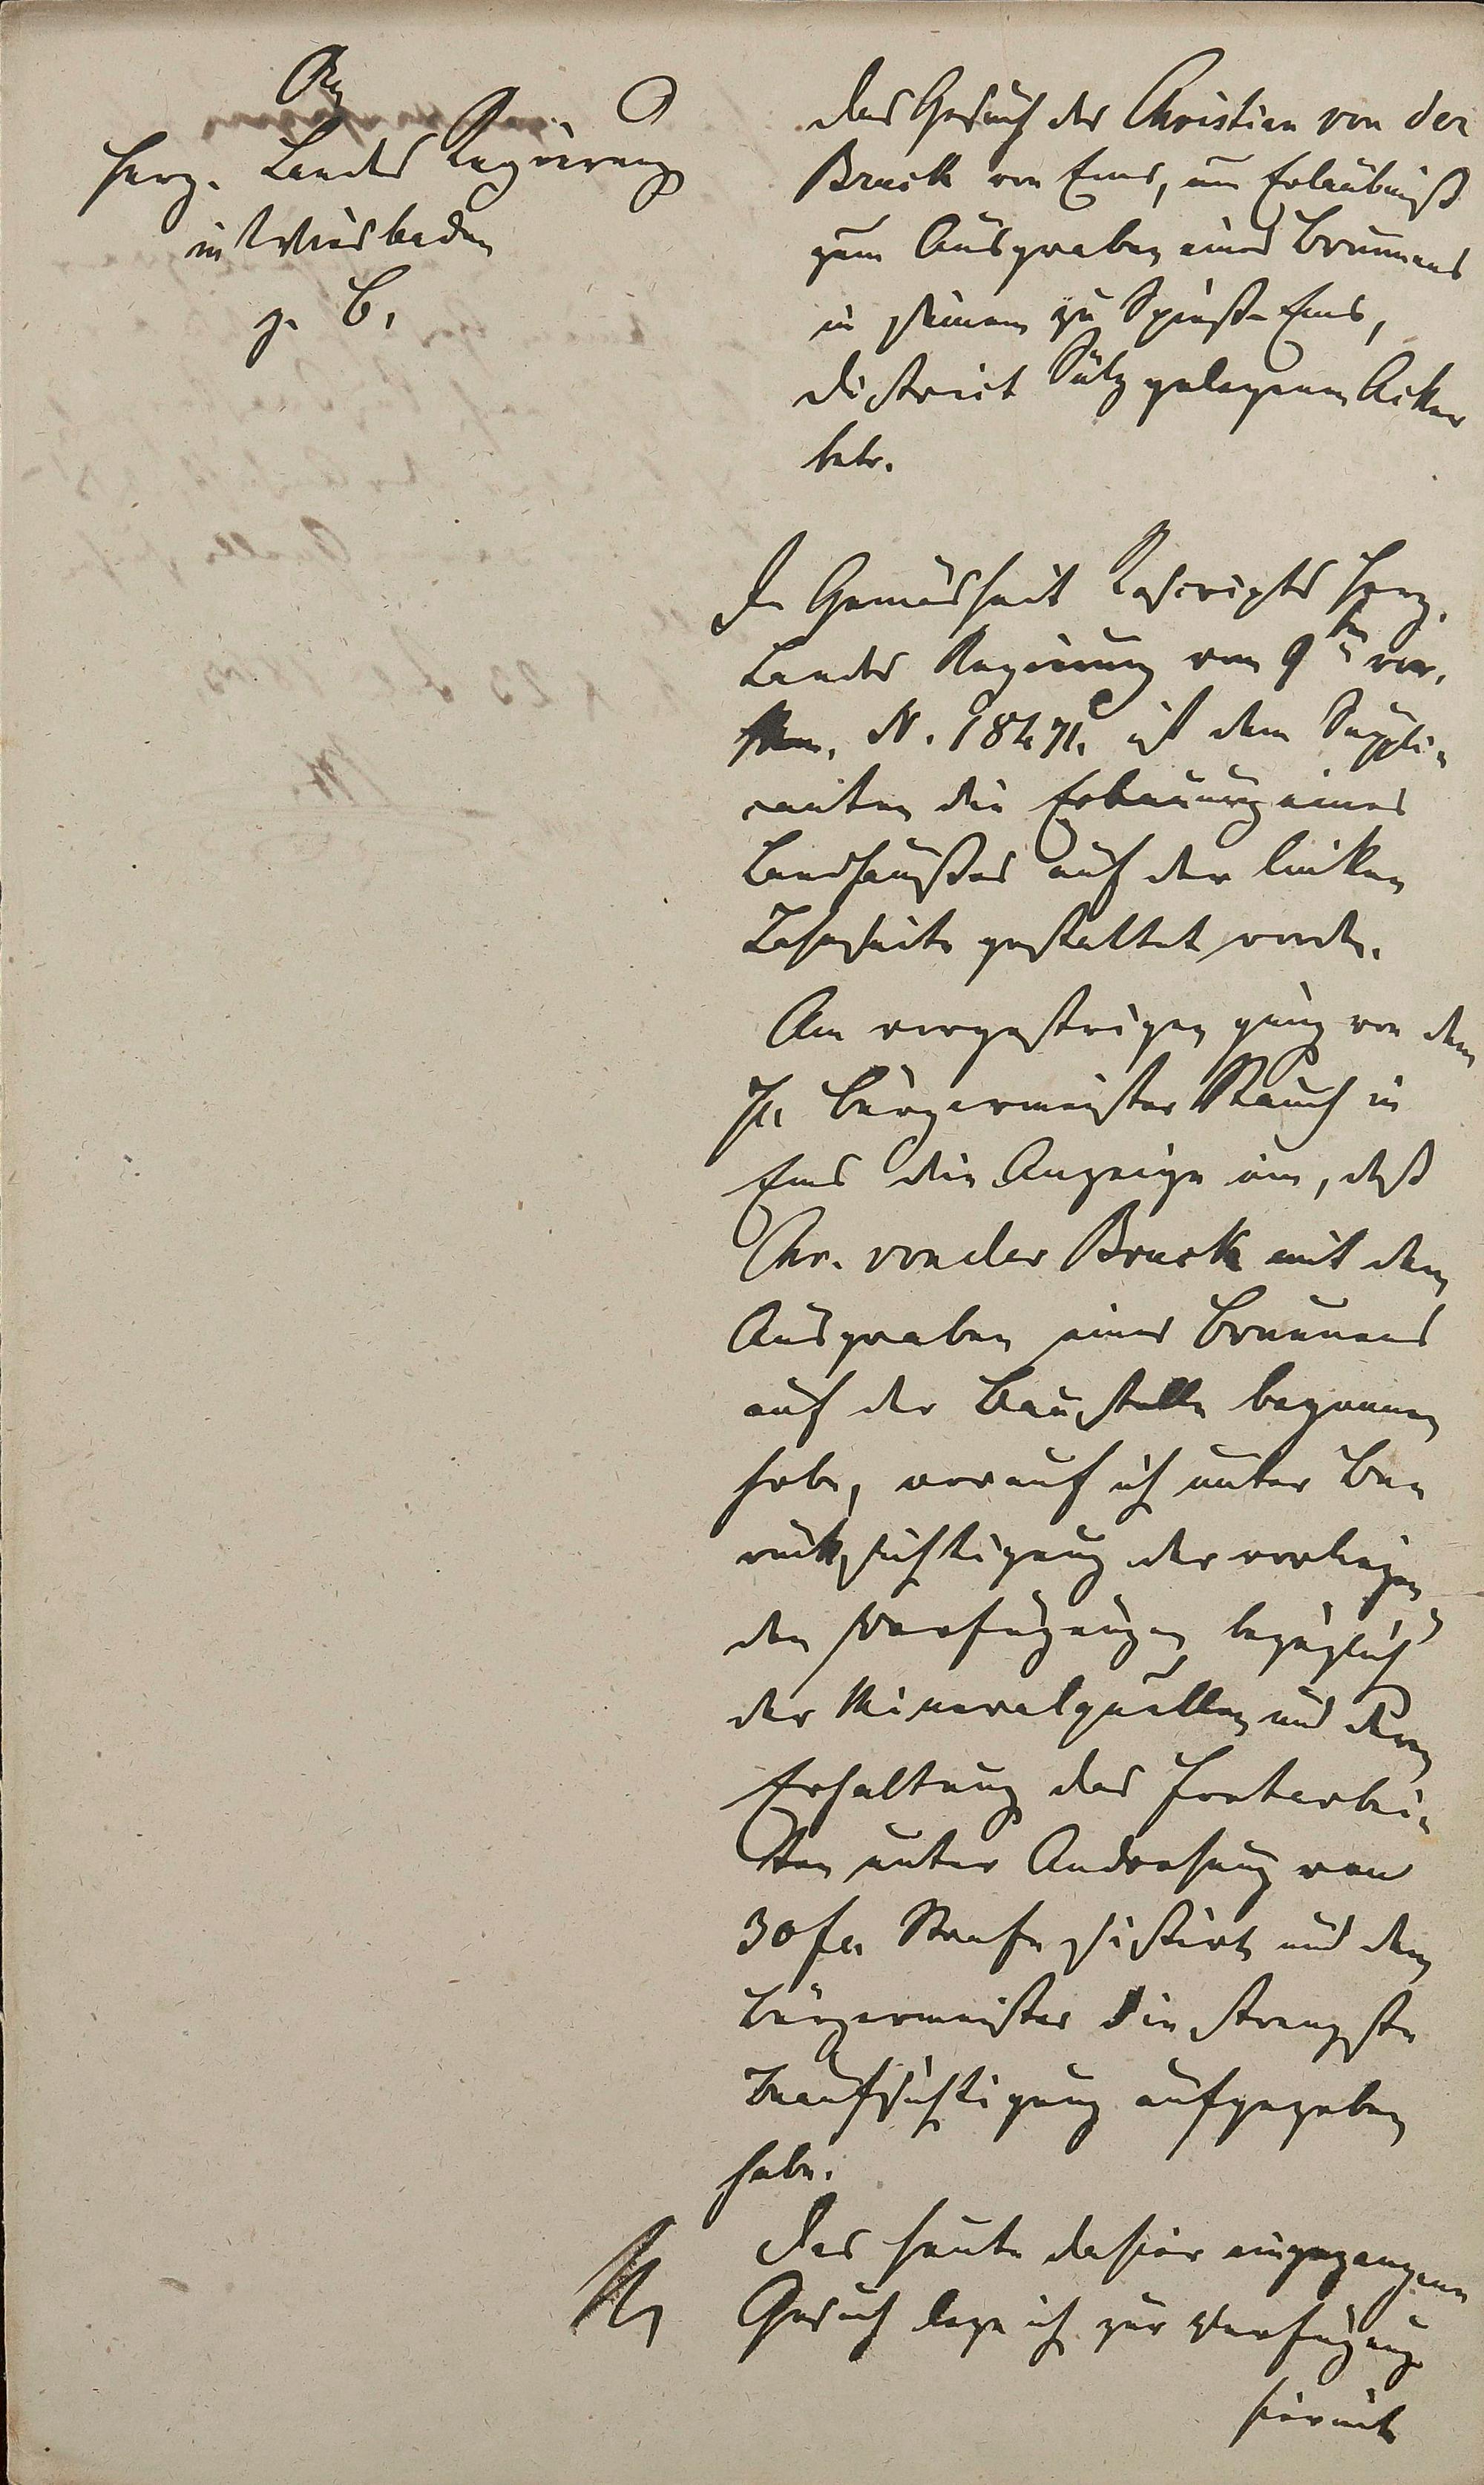 An
Herz. Landes Regierung
in Wiesbaden
z. B.
Das Gesuch des Christian von der
Bruck von Ems, um Erlaubniß
zum Ausgraben eines Brunnens
in seinem zu Spieß-Ems,
District Sülz gelegenen Acker
betr.
In Gemäsheit Rescripts Herz.
Landes Regierung vom 9ten vor.
Mon. N. 18471. ist dem Suppli-
canten die Erbauung eines
Landhaußes auf der linken
Lahnseite gestattet worden.
Am vorgestrigen ging von dem
H. Bürgermeister Rauch in
Ems die Anzeige ein, daß
Chr. von der Bruck mit dem
Ausgraben eines Brunnens
auf der Baustelle begonnen
habe, worauf ich unter Be-
rücksichtigung der vorliegen-
den Verfügungen bezüglich
der Mineralquellen und deren
Erhaltung das Fortarbei-
ten unter Androhung von
30 fl. Strafe sistirt und dem
Bürgermeister die strengste
Beaufsichtigung aufgegeben
habe.
Das heute dahier eingegangene
Gesuch lege ich zur Verfügung
hiermit